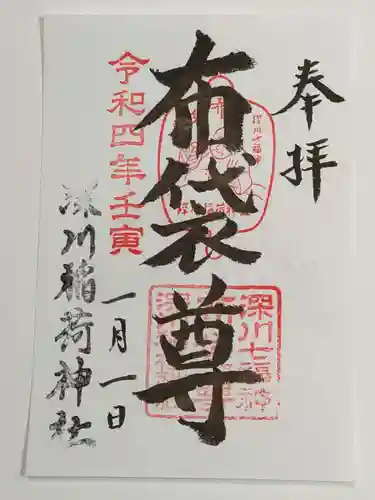 奉拝
布袋尊
令和四年壬寅
一月一日
深川稲荷神社
深川七福神
深川七福神